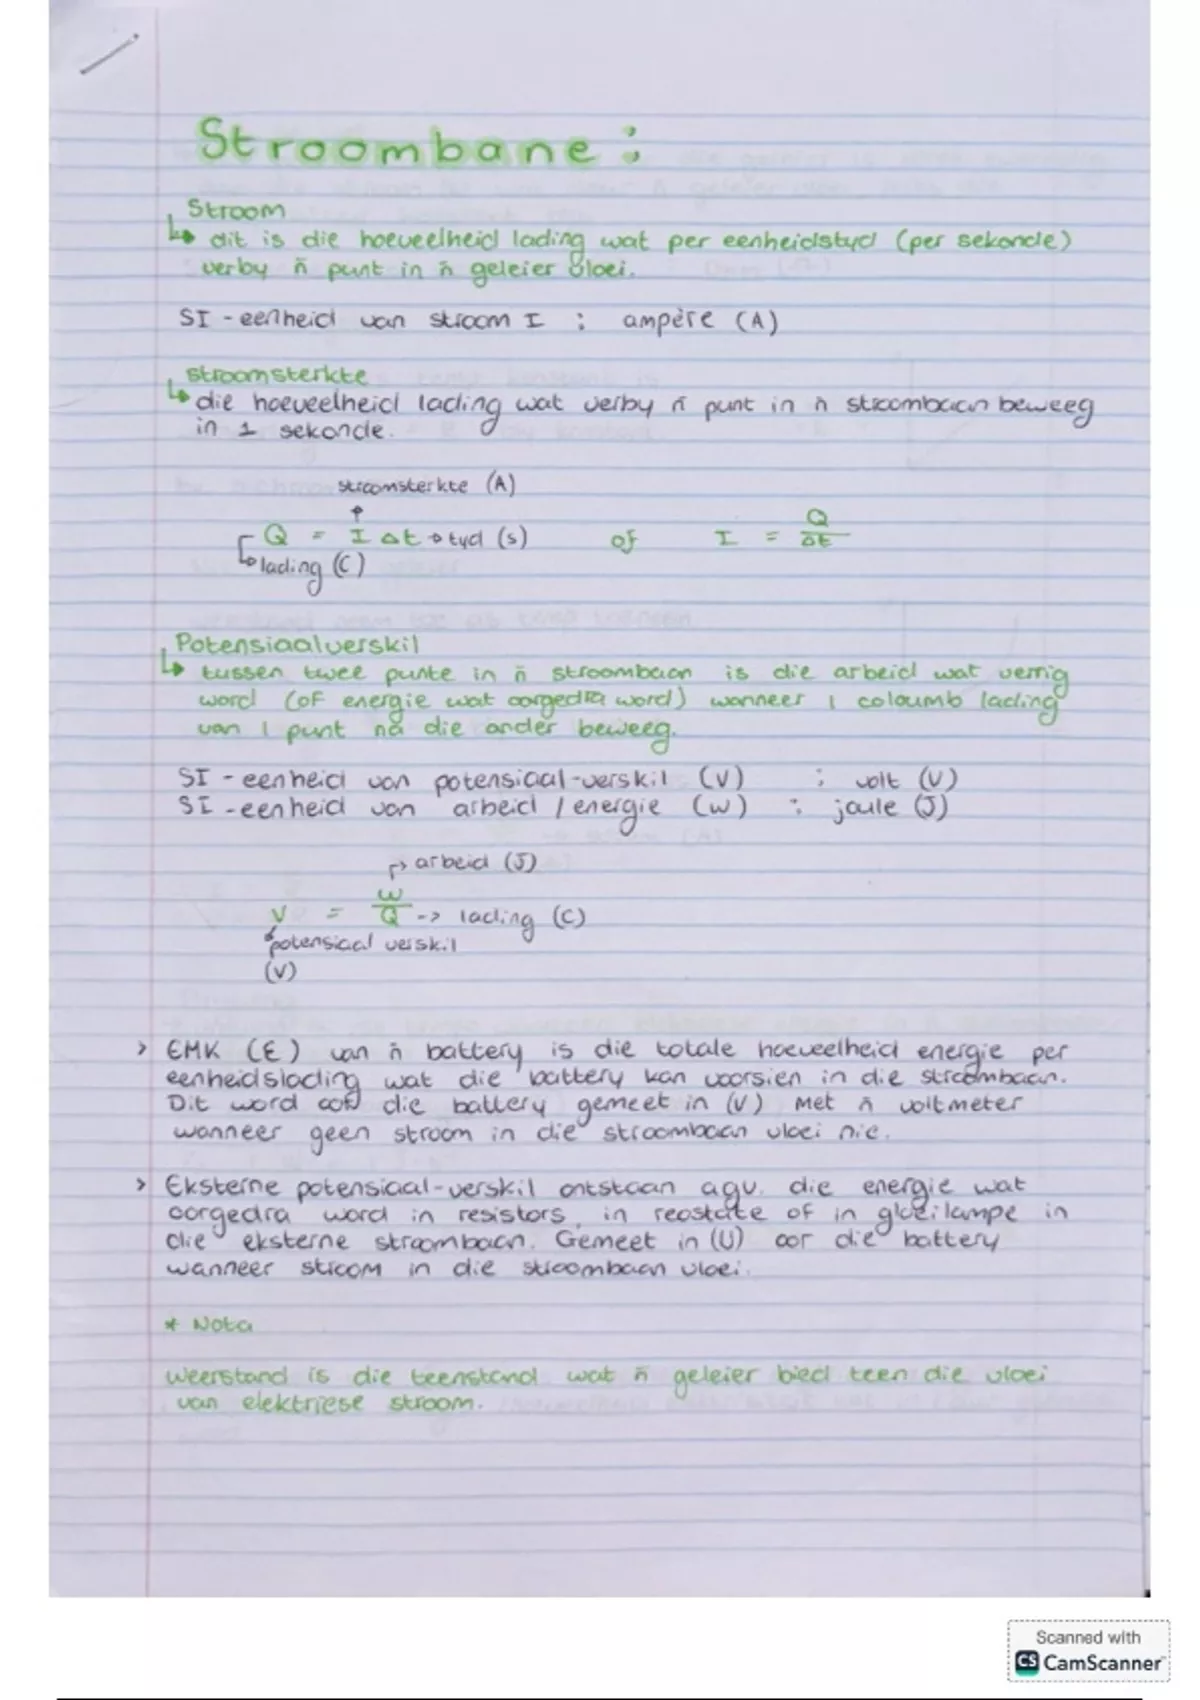 Stroombane :
Stroom
↳ dit is die hoeveelheid lading wat per eenheidstyd (per sekonde)
verby ñ punt in ñ geleier vloei.
SI - eenheid van stroom I : ampère (A)
stroomsterkte
↳ die hoeveelheid lading wat verby ñ punt in ñ stroombaan beweeg
in 1 sekonde.
stroomsterkte (A)
Q = I Δt → tyd (s) of I = Q/Δt
↳ lading (C)
Potensiaalverskil
↳ tussen twee punte in ñ stroombaan is die arbeid wat verrig
word (of energie wat oorgedra word) wanneer 1 coloumb lading
van 1 punt na die ander beweeg.
SI - eenheid van potensiaal-verskil (V) : volt (V)
SI - eenheid van arbeid / energie (W) : joule (J)
↱ arbeid (J)
V = W/Q -> lading (C)
potensiaal verskil
(V)
> EMK (Ɛ) van ñ battery is die totale hoeveelheid energie per
eenheidslading wat die battery kan voorsien in die stroombaan.
Dit word oor die battery gemeet in (V) met ñ voltmeter
wanneer geen stroom in die stroombaan vloei nie.
> Eksterne potensiaal-verskil ontstaan agv. die energie wat
oorgedra word in resistors, in reostate of in gloeilampe in
die eksterne stroombaan. Gemeet in (V) oor die battery
wanneer stroom in die stroombaan vloei.
* Nota
Weerstand is die teenstand wat ñ geleier bied teen die vloei
van elektriese stroom.
Scanned with
CS CamScanner